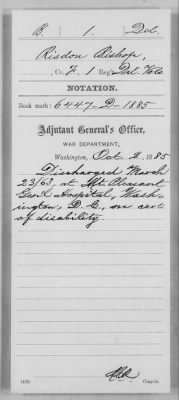 B. 1. Del.
Risdon Bishop,
Co. F, 1 Reg't Del. Vols.
NOTATION.
Book mark: 6447-D-1885
Adjutant General's Office,
WAR DEPARTMENT,
Washington, Oct. 2, 1885
Discharged March
23/63, at Mt. Pleasant
Gen'l Hospital, Wash-
ington, D.C., on cert
of disability.
Copyist.